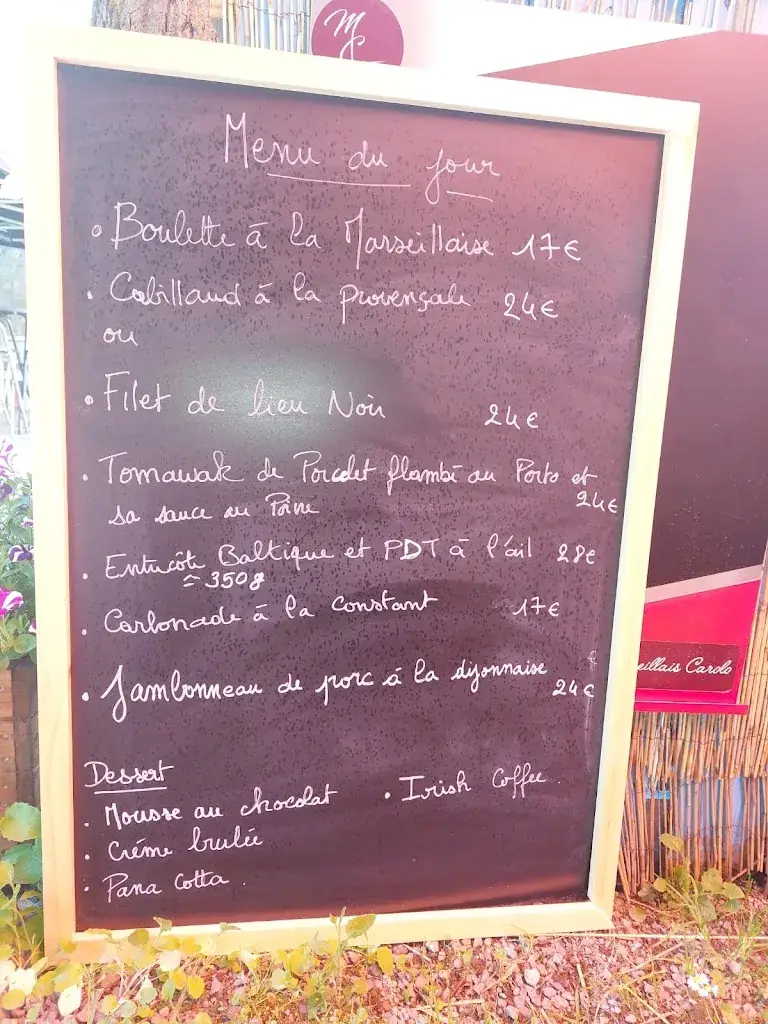 MC
Menu du jour
• Boulette à la Marseillaise 17€
• Cabillaud à la provençale 24€
ou
• Filet de lieu Noir 24€
• Tomawak de Porcelet flambé au Porto et
sa sauce au Poivre 24€
• Entrecôte Baltique et PDT à l'ail 28€
≃ 350g
• Carbonade à la constant 17€
• Jambonneau de porc à la dijonnaise 24€
Dessert
• Mousse au chocolat • Irish Coffee.
• Crème brulée
• Pana Cotta.
eillais Carolo